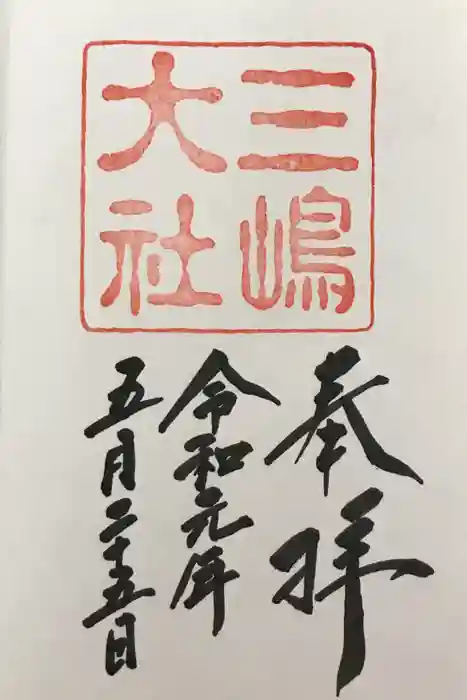 三嶋
大社
奉拝
令和元年
五月二十五日